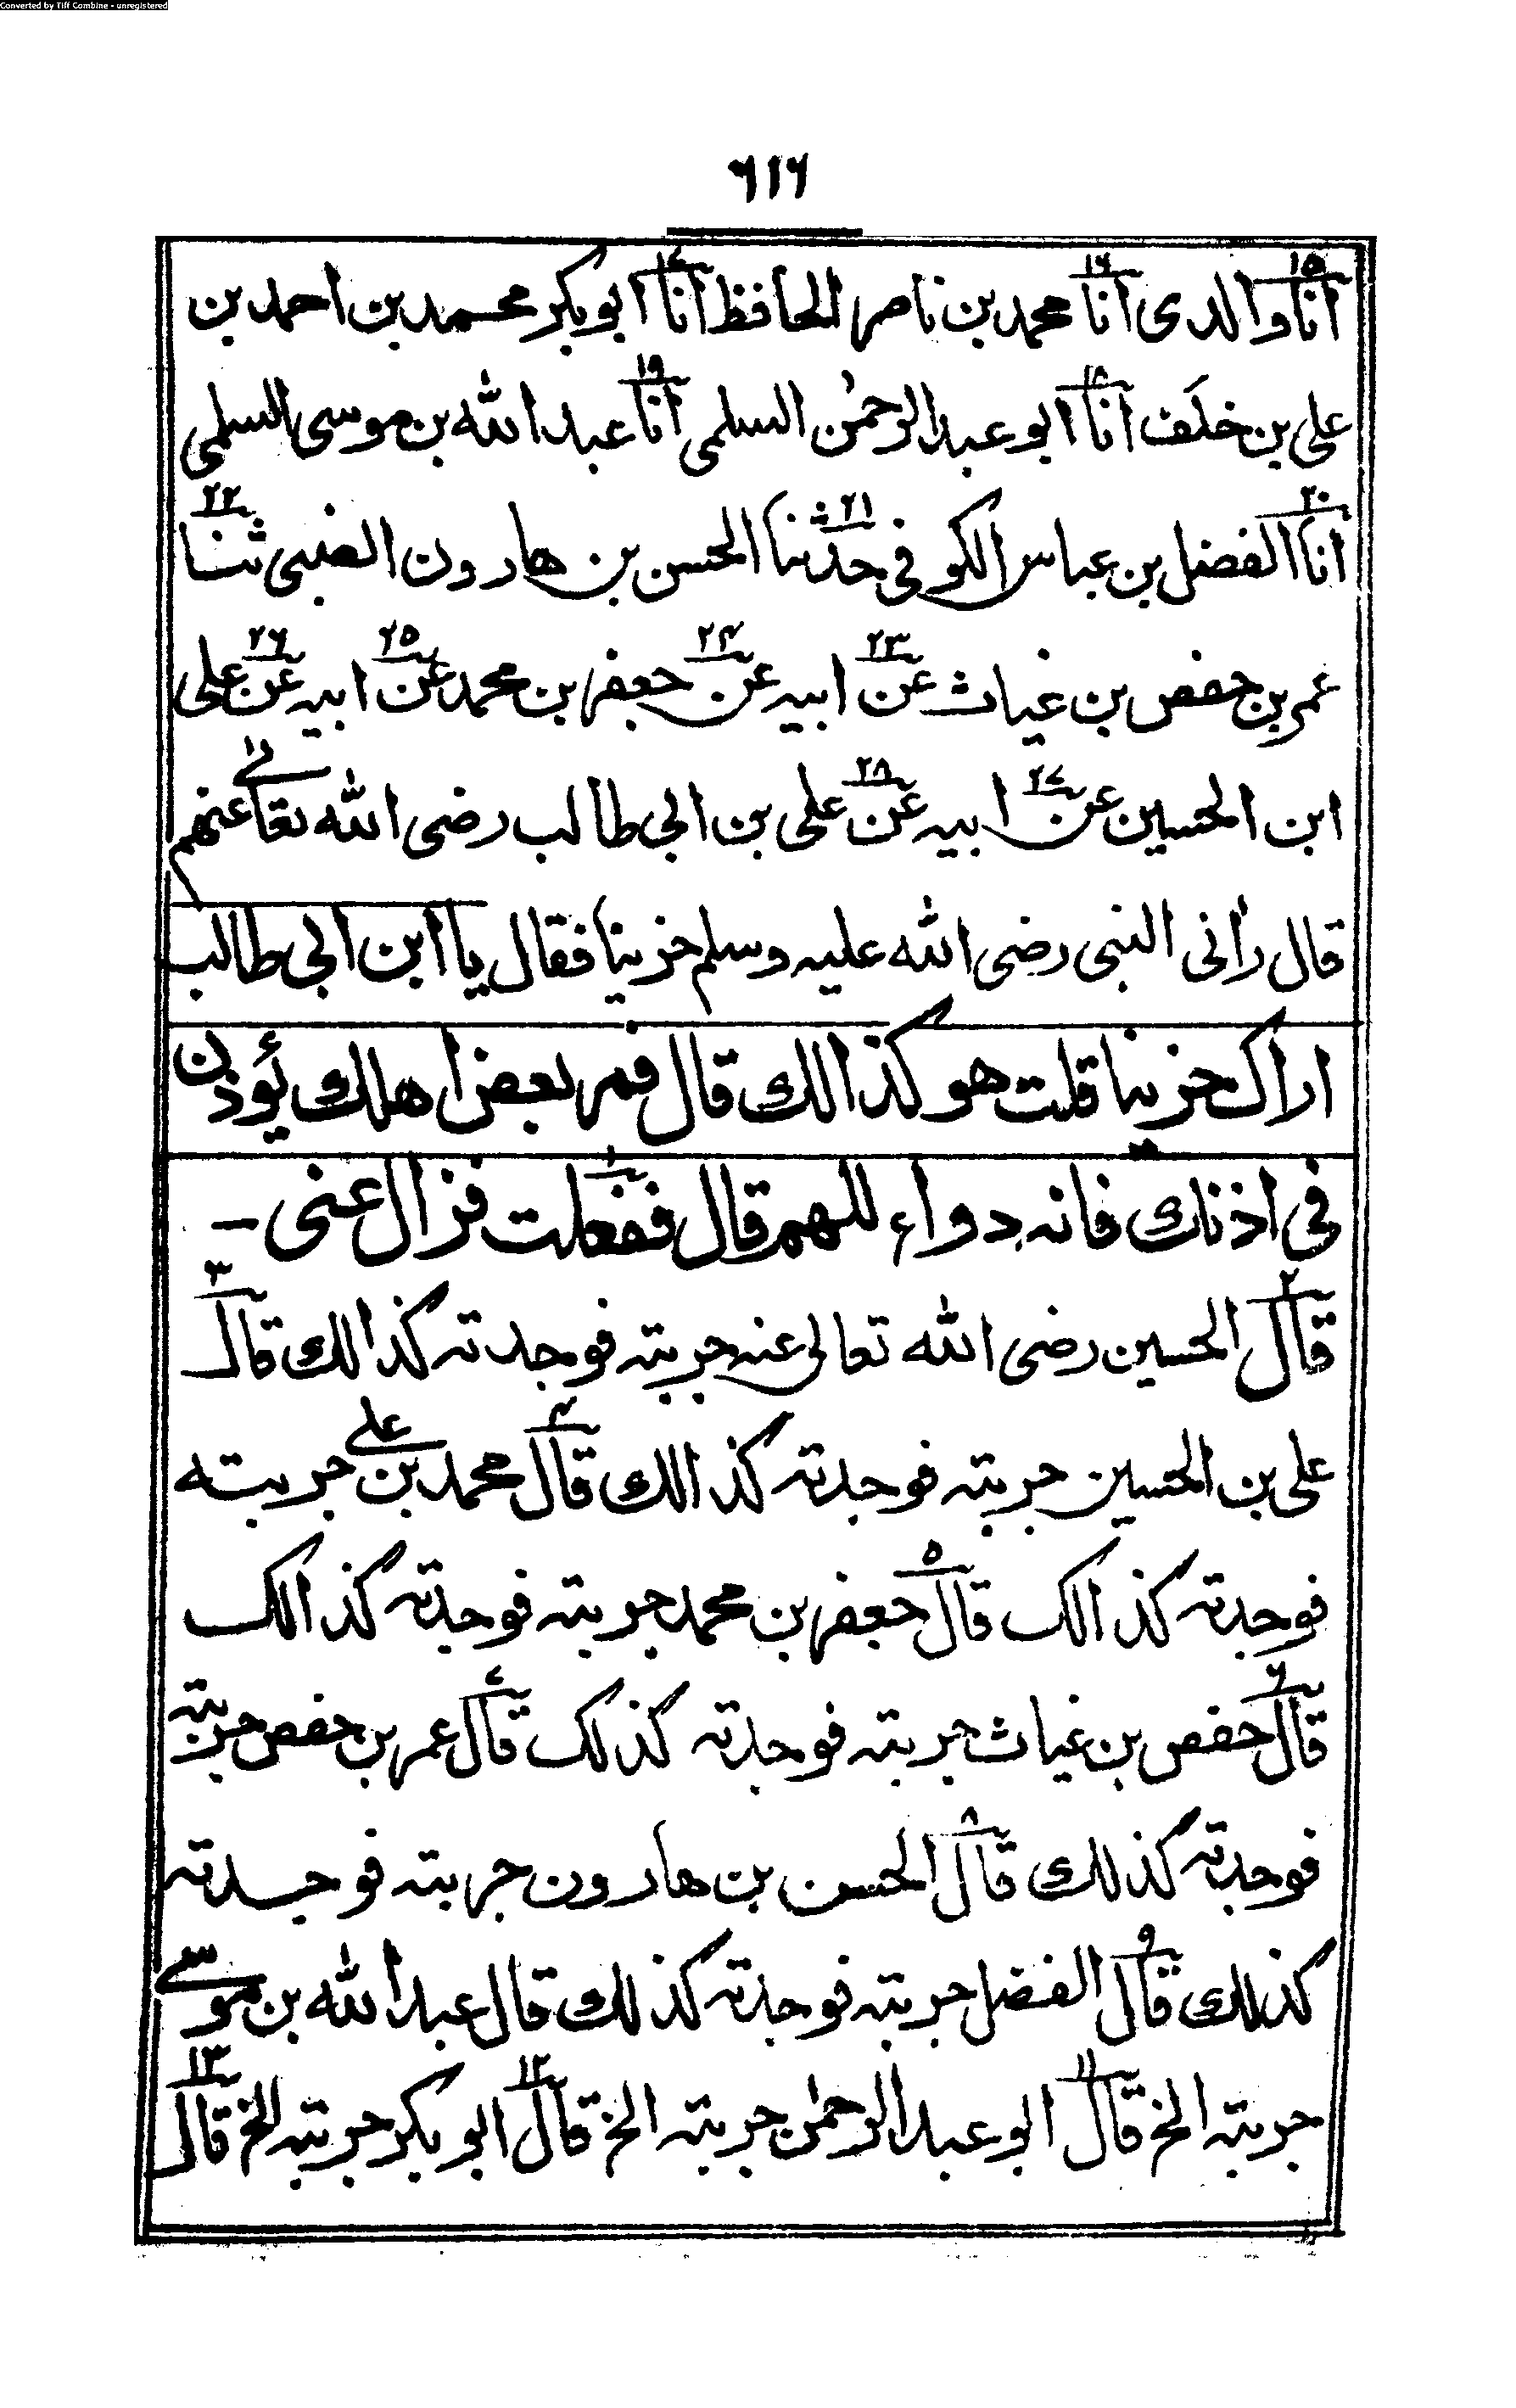 Converted by Tiff Combine - unregistered
٦١٦
انا والدی انا محمد بن ناصر الحافظ انا ابوبکر محمد بن احمد بن
علی بن خلف انا ابو عبدالرحمٰن السلمی انا عبد اللہ بن موسی السلمی
انا الفضل بن عباس الکوفی حدثنا الحسن بن هارون الضبی ثنا
عمر بن حفص بن غیاث عن ابیہ عن جعفر بن محمد عن ابیہ عن علی
ابن الحسین عن ابیہ عن علی بن ابی طالب رضی اللہ تعالے عنهم
قال رأنی النبی رضی اللہ علیہ وسلم حزینا فقال یا ابن ابی طالب
اراک حزینا قلت هو کذالک قال فمر بعض اهلک یٔوذن
فی اذنک فانہ دواء للهم قال ففعلت فزال عنی -
قال الحسین رضی اللہ تعالی عنہ جربتہ فوجدتہ کذالک قال
علی بن الحسین جربتہ فوجدتہ کذالک قال محمد بن علے جربتہ
فوجدتہ کذالک قال جعفر بن محمد جربتہ فوجدتہ کذالک
قال حفص بن غیاث جربتہ فوجدتہ کذلک قال عمر بن حفص جربتہ
فوجدتہ کذلک قال الحسن بن هارون جربتہ فوجدتہ
کذلک قال الفضل جربتہ فوجدتہ کذلک قال عبداللہ بن موسے
جربتہ الخ قال ابو عبدالرحمٰن جربتہ الخ قال ابوبکر جربتہ الخ قال